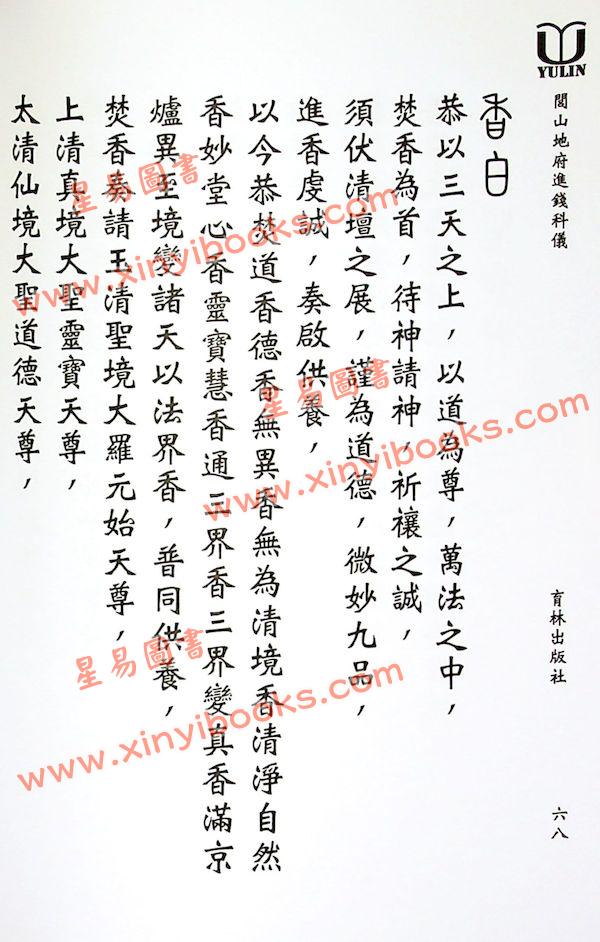 YULIN
閭山地府進錢科儀
育林出版社
六八
香白
恭以三天之上，以道為尊，萬法之中，
焚香為首，待神請神，祈禳之誠，
須伏清壇之展，謹為道德，微妙九品，
進香虔誠，奏啟供養，
以今恭焚道香德香無異香無為清境香清淨自然
香妙堂心香靈寶慧香通三界香三界變真香滿京
爐異至境變諸天以法界香，普同供養，
焚香奏請玉清聖境大羅元始天尊，
上清真境大聖靈寶天尊，
太清仙境大聖道德天尊，
星易圖書
www.xinyibooks.com
星易圖書
www.xinyibooks.com
星易圖書
www.xinyibooks.com